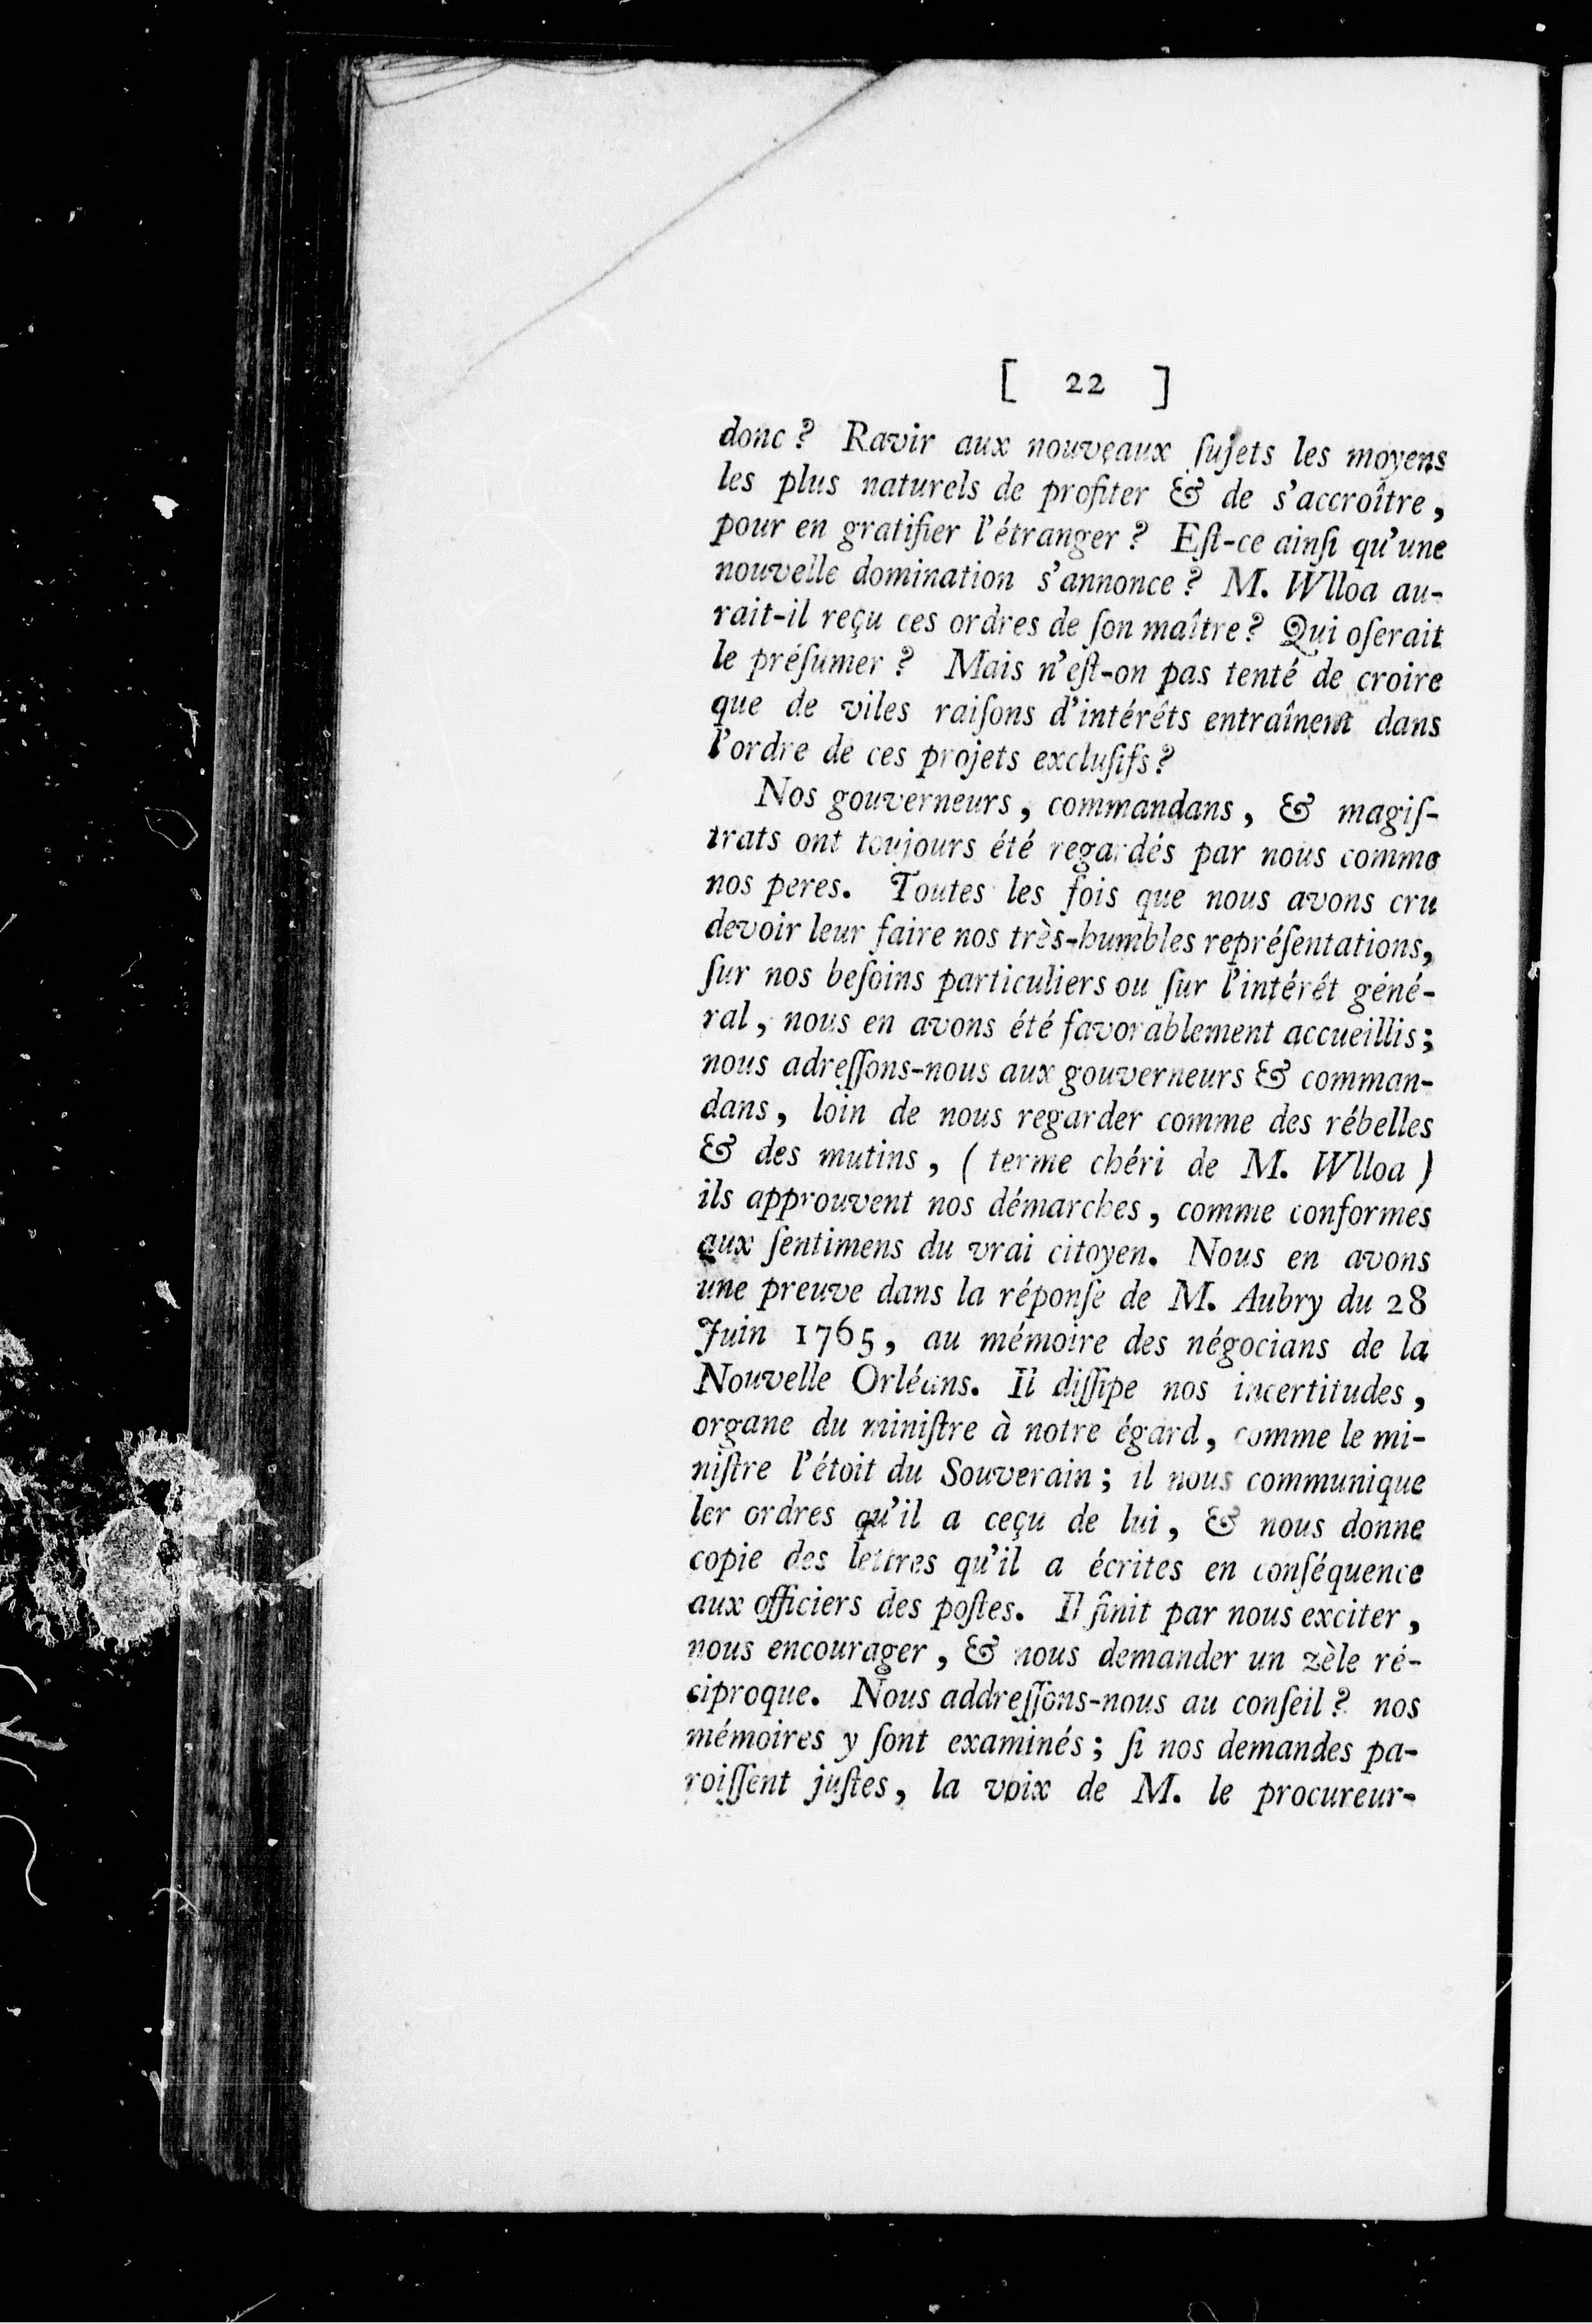 [ 22 ]
donc ? Ravir aux nouveaux ſujets les moyens
les plus naturels de profiter & de s'accroître,
pour en gratifier l'étranger ? Eſt-ce ainſi qu'une
nouvelle domination s'annonce ? M. Wlloa au-
rait-il reçu ces ordres de ſon maître ? Qui oſerait
le préſumer ? Mais n'eſt-on pas tenté de croire
que de viles raiſons d'intérêts entraînent dans
l'ordre de ces projets excluſifs ?
Nos gouverneurs, commandans, & magiſ-
trats ont toujours été regardés par nous comme
nos peres. Toutes les fois que nous avons cru
devoir leur faire nos très-humbles repréſentations,
ſur nos beſoins particuliers ou ſur l'intérêt géné-
ral, nous en avons été favorablement accueillis ;
nous adreſſons-nous aux gouverneurs & comman-
dans, loin de nous regarder comme des rébelles
& des mutins, ( terme chéri de M. Wlloa )
ils approuvent nos démarches, comme conformes
aux ſentimens du vrai citoyen. Nous en avons
une preuve dans la réponſe de M. Aubry du 28
Juin 1765, au mémoire des négocians de la
Nouvelle Orléans. Il diſſipe nos incertitudes,
organe du miniſtre à notre égard, comme le mi-
niſtre l'étoit du Souverain ; il nous communique
ler ordres qu'il a ceçu de lui, & nous donne
copie des lettres qu'il a écrites en conſéquence
aux officiers des poſtes. Il finit par nous exciter,
nous encourager, & nous demander un zèle ré-
ciproque. Nous addreſſons-nous au conſeil ? nos
mémoires y ſont examinés ; ſi nos demandes pa-
roiſſent juſtes, la voix de M. le procureur-